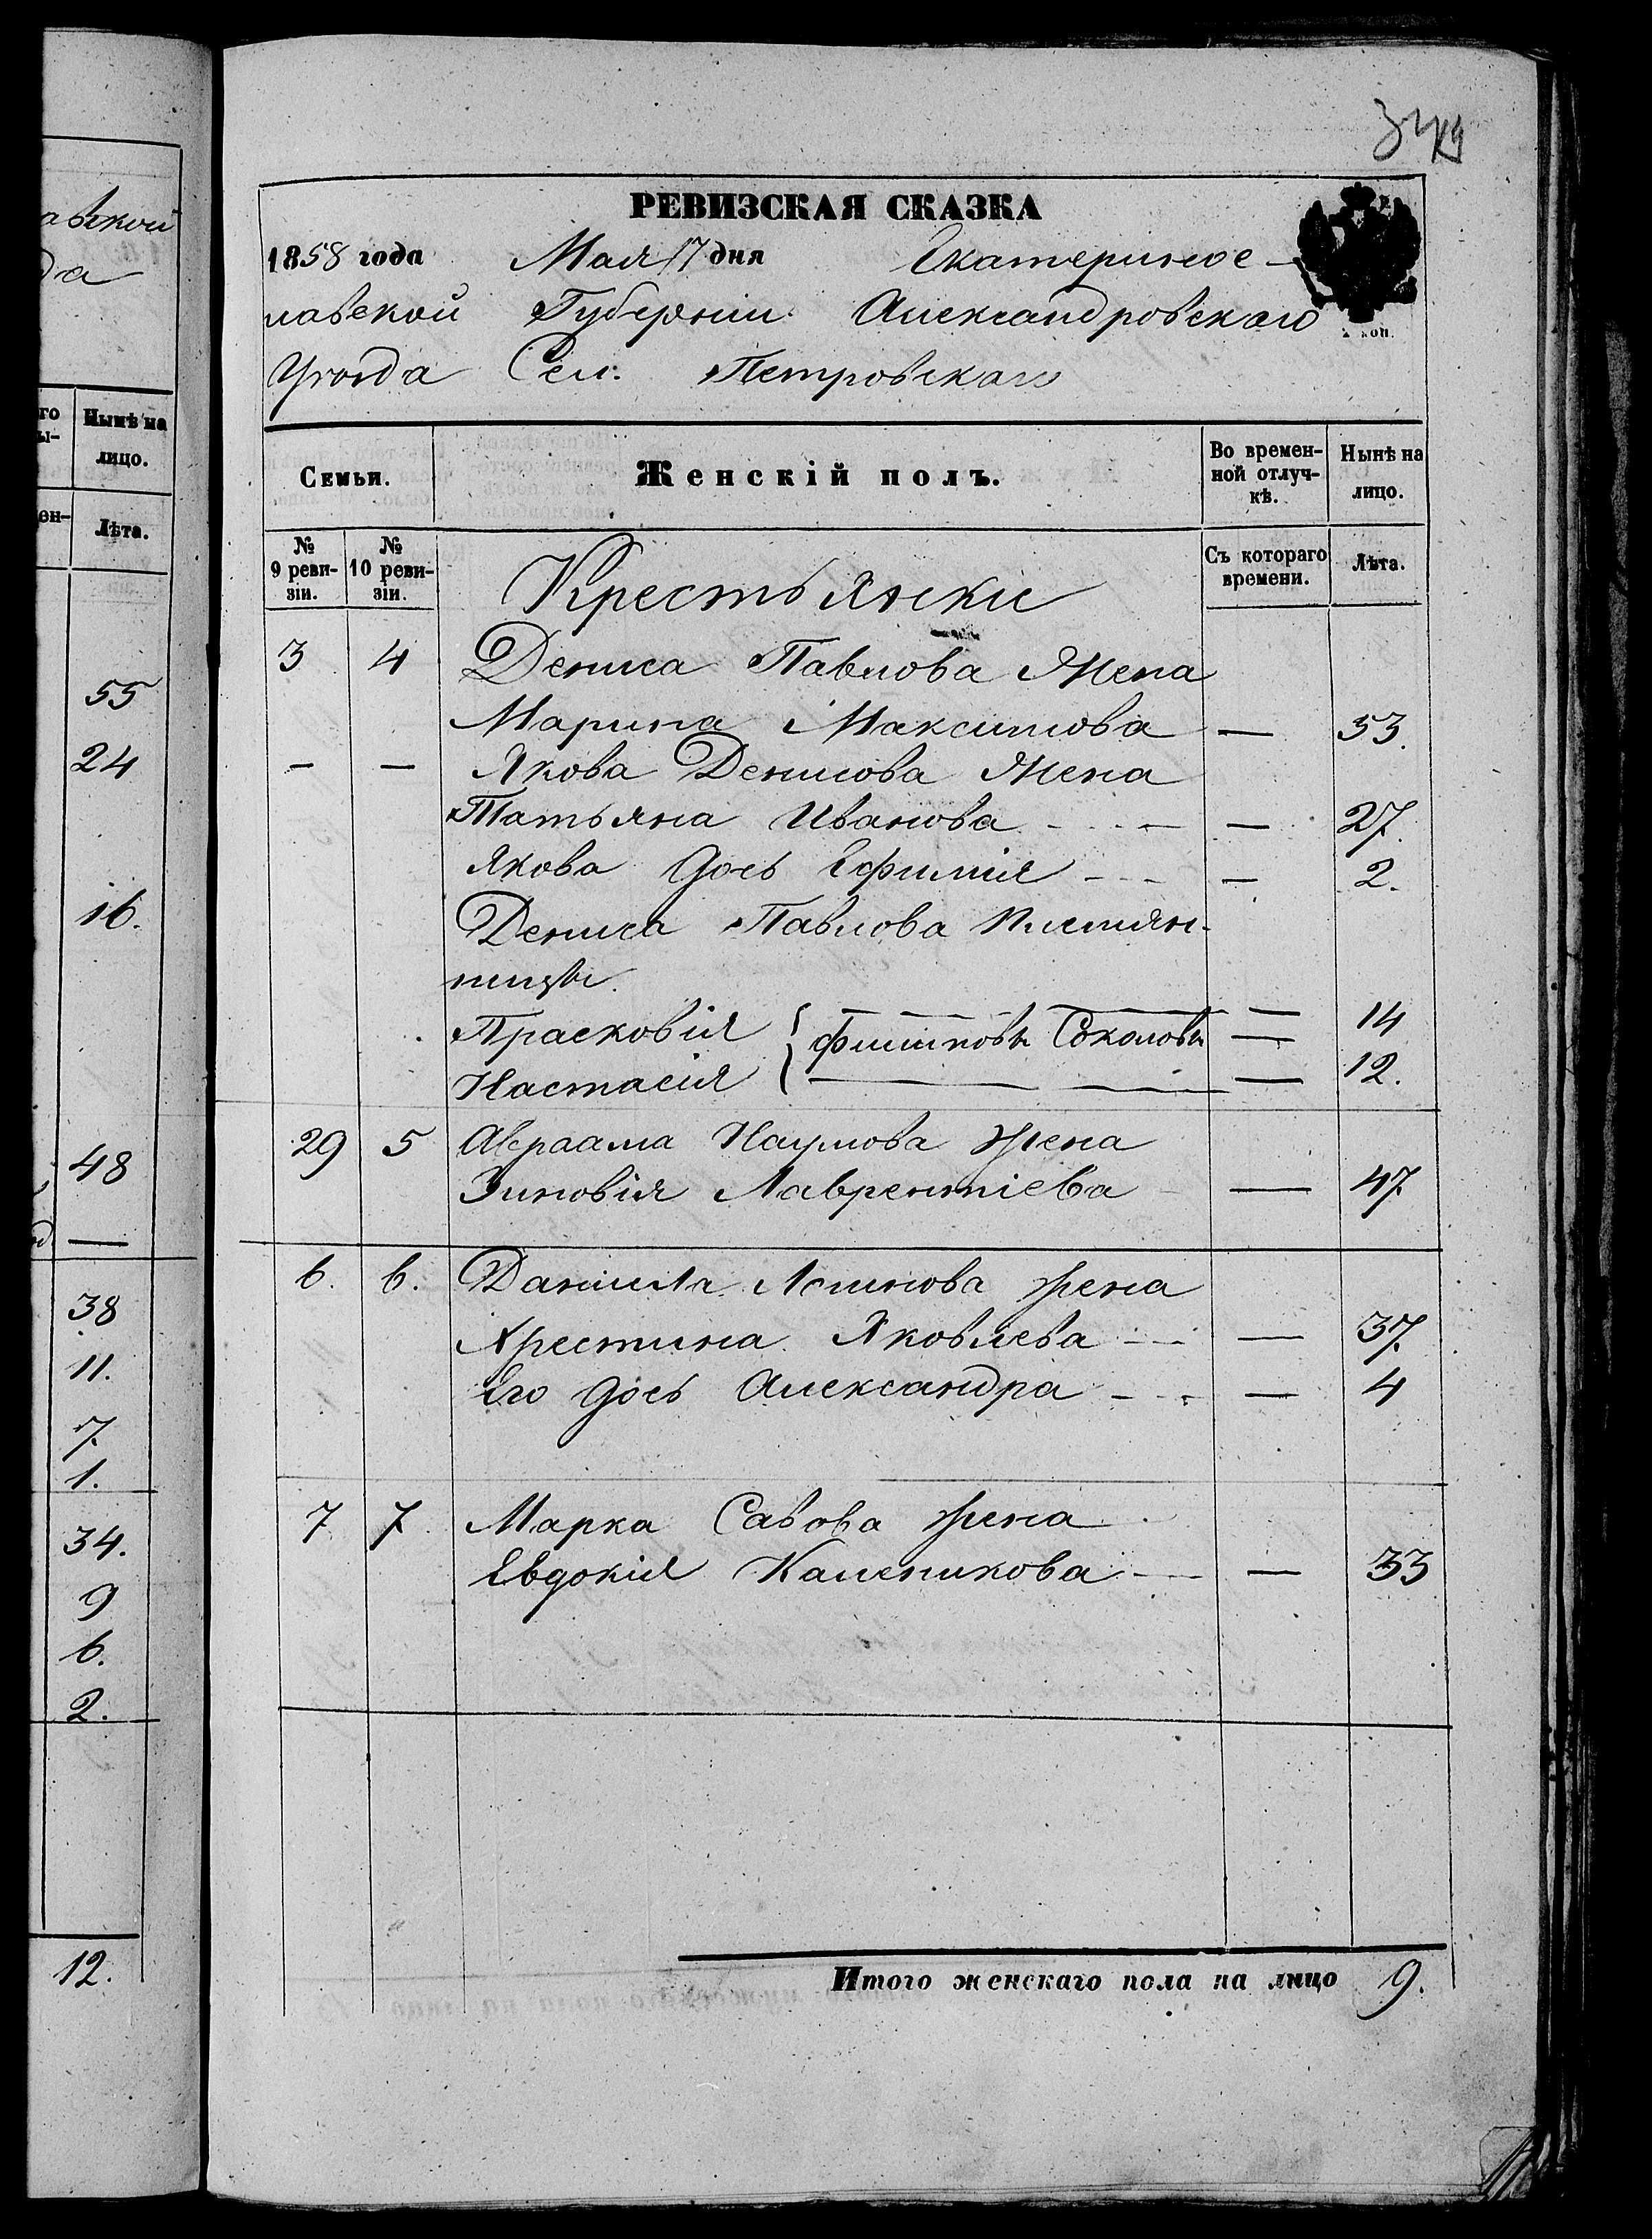 авской
да
го
ы-
Нынѣ на
лицо.
ен-
Лѣта.
55
24
16.
48
—
38
11.
7.
1.
34.
9
6.
2.
12.
РЕВИЗСКАЯ СКАЗКА
1858 года Мая 17 дня Екатеринос-
лавской Губерніи Александровскаго
Уѣзда Сел. Петровскаго
коп.
Семьи. Женскій полъ. Во времен-ной отлуч-кѣ. Нынѣ на лицо.
№ 9 реви-зіи. № 10 реви-зіи. Съ котораго времени. Лѣта.
Крестьянки
3 4 Дениса Павлова Жена
Марина Максимова — 53.
— — Якова Денисова Жена
Татьяна Иванова - - - — 27.
Якова дочь Ефимія - - - — 2.
Дениса Павлова Племян-
ницы
Прасковія — 14
Филиповы Соколовы —
Настасія — 12.
29 5 Авраама Наумова жена
Зиновія Лаврентіева — 47
6. 6. Даніила Логинова жена
Хрестина Яковлева — 37.
Его дочь Александра - - - — 4
7 7. Марка Савова жена
Евдокія Каленикова — 33
Итого женскаго пола на лицо 9.